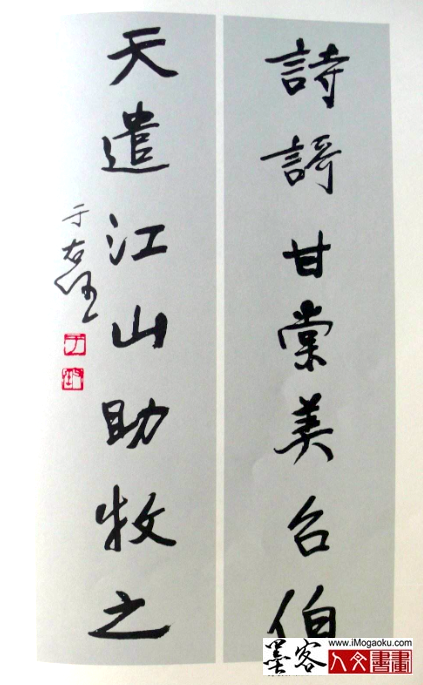 詩謌甘棠美召伯
天遣江山助牧之
于右任
墨客
www.iMogaoku.com
人文書畫